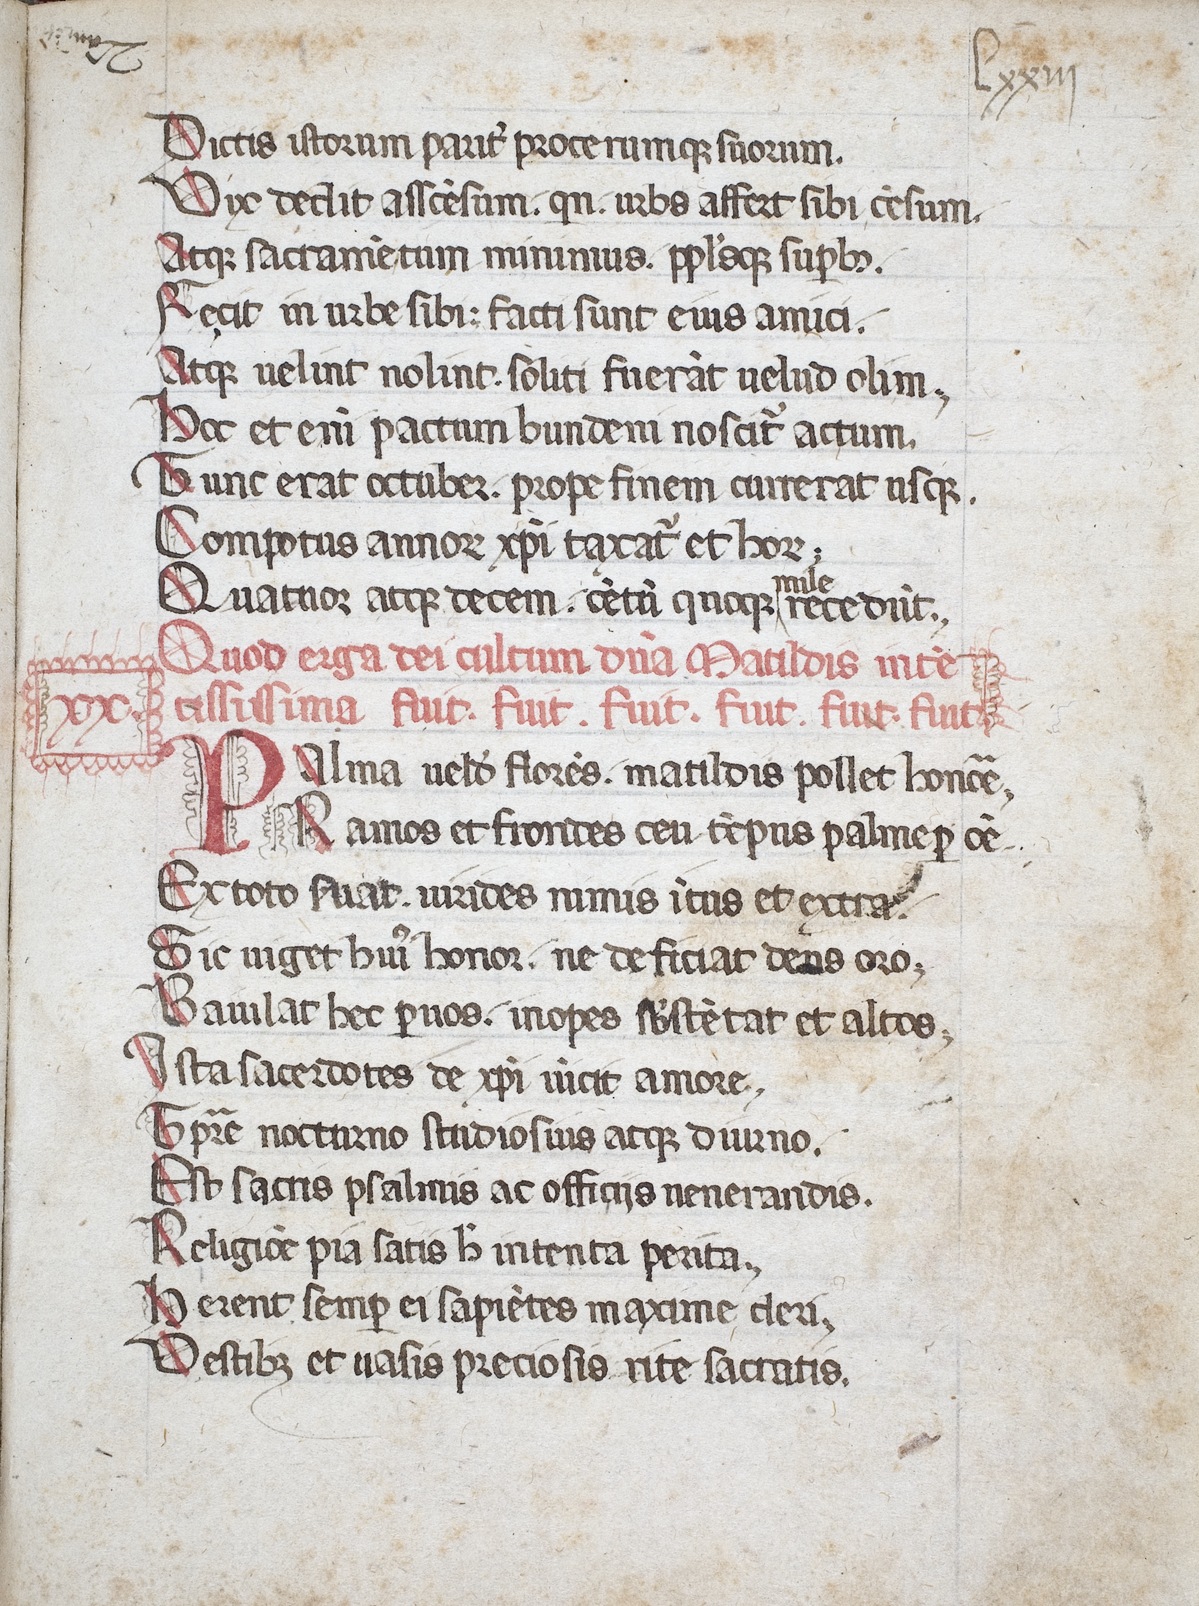 Lxxiii
Dictis istorum parit͛ procerumqꝫ suorum.
Vix dedit asscēsum. qn̄. urbs affert sibi cēsum.
Atqꝫ sacramētum minimus. ppl̓sqꝫ suꝑbꝰ.
Fecit in urbe sibi: facti sunt eius amici.
Atqꝫ uelint nolint. soliti fuerāt uelud olim;
Hoc et enī pactum bundeni noscit᷑ actum.
Tunc erat octuber. prope finem currerat usqꝫ.
Compotus annoꝝ xp̄i taxat᷑ et hoꝝ;
Quatuor atqꝫ decem. cētū quoqꝫ mile recedūt.,
Quod erga dei cultum dn̄a Matildis intē
XX. tississima fuit. fuit. fuit. fuit. fuit. fuit
PAlma uelđ flores. matildis pollet honōre;
Ramos et frondes ceu tēpus palme ꝑ oē.
Ex toto seruat. uirides nimis ītus et extra.
Sic uiget huiꝰ honor. ne deficiat deus oro;
Bauilat hec ꝑuos. inopes sustētat et altos;
Ista sacerdotes de xp̄i uīcit amore.,
Tp̄re nocturno studiosius atqꝫ diurno.
Est sacris psalmis ac officijs uenerandis.
Religiōe pia satis hͦ intenta perita.,
Herent semꝑ ei sapiētes maxime cleri;
Vestibꝫ et uasis preciosis rite sacratis.